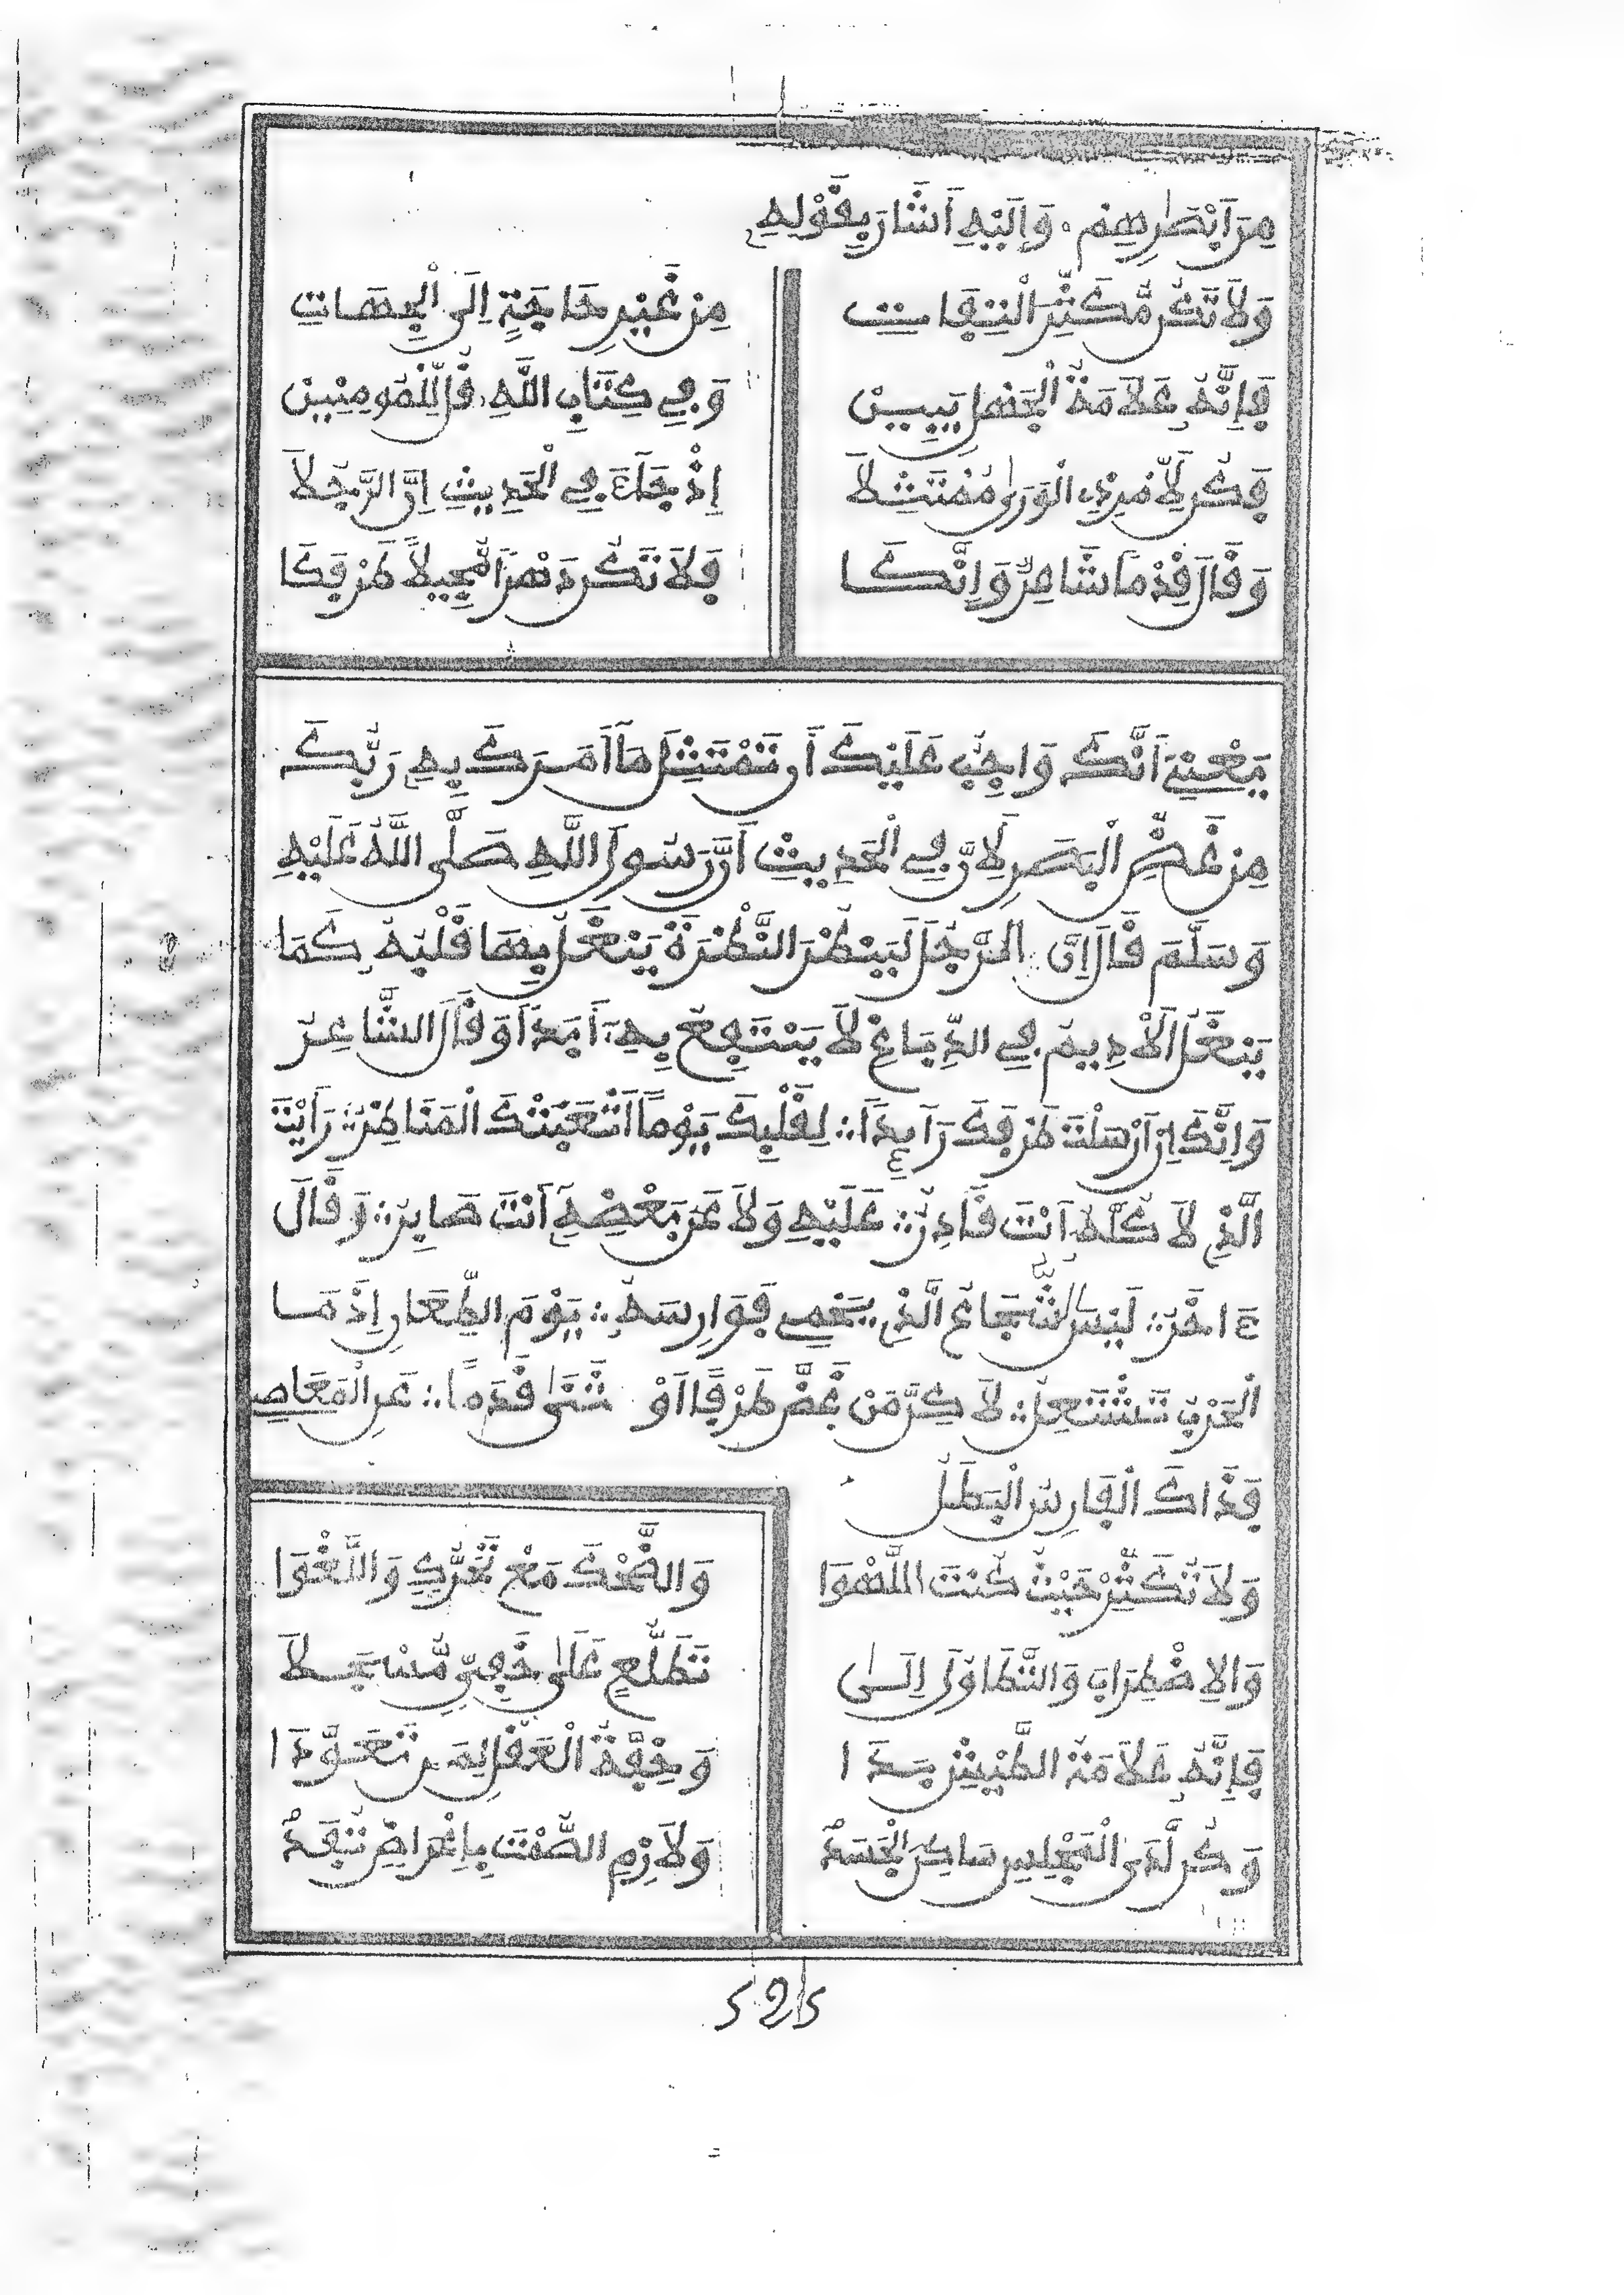 مِنَ اَبْصٰرِهِمْ وَإِلَيْهِ أَشَارَ بِقَوْلِهِ
وَلاَ تَكُن مُّكَثِّرَ الْتِفَاتِ مِنْ غَيْرِ حَاجَةٍ إِلَى الْجِهَاتِ
فَإِنَّهُ عَلاَمَةُ الْجَهْلِ يَبِينْ وَفِي كِتَابِ اللَّهِ قُل لِّلْمُومِنِينْ
فَكُن لِأَمْرِ ذِي الْوَرَىٰ مُمْتَثِلاَ إِذْ جَاءَ فِي الْحَدِيثِ إِنَّ الرَّجُلاَ
وَقَالَ قِدْماً شَاعِرٌ وَإِنَّكَا فَلاَ تَكُن دَهْراً مُّجِيلاً طَرْفَكَا
يَعْنِي أَنَّكَ وَاجِبٌ عَلَيْكَ أَن تَمْتَثِلَ مَا أَمَرَكَ بِهِ رَبُّكَ
مِنْ غَضِّ الْبَصَرِ لِأَنَّ فِي الْحَدِيثِ أَنَّ رَسُولَ اللَّهِ صَلَّى اللَّهُ عَلَيْهِ
وَسَلَّمَ قَالَ إِنَّ الرَّجُلَ لَيَنْظُرُ النَّظْرَةَ يَنْغَلُ بِهَا قَلْبُهُ كَمَا
يَنْغَلُ الْأَدِيمُ فِي الدِّبَاغِ لاَ يَنْتَفِعُ بِهِ أَبَداً وَقَالَ الشَّاعِرُ
وَإِنَّكَ إِنْ أَرْسَلْتَ طَرْفَكَ رَائِداً ∴ لِقَلْبِكَ يَوْماً أَتْعَبَتْكَ الْمَنَاظِرُ ∴ رَأَيْتَ
الَّذِي لاَ كُلَّهُ أَنْتَ قَادِرٌ ∴ عَلَيْهِ وَلاَ عَن بَعْضِهِ أَنْتَ صَابِرُ ∴ وَقَالَ
ءَاخَرُ ∴ لَيْسَ الشُّجَاعُ الَّذِي يَحْمِي فَوَارِسَهُ ∴ يَوْمَ الطِّعَانِ إِذْ مَا
الْحَرْبُ تَشْتَعِلُ ∴ لَاكِنَّ مَنْ غَضَّ طَرْفاً أَوْ ثَنَىٰ قَدَماً ∴ عَنِ الْمَعَاصِي
فَذَاكَ الْفَارِسُ الْبَطَلُ
وَلاَ تُكَثِّرْ حَيْثُ كُنْتَ اللَّهْوَا وَالضَّحْكَ مَعْ تَحَرُّكٍ وَاللَّغْوَا
وَالِاضْطِرَابَ وَالتَّطَاوُلَ إِلَىٰ تَطَلُّعٍ عَلَىٰ خَفِيٍّ مِّنْهُ جَلاَ
فَإِنَّهُ عَلاَمَةُ الطَّيْشِ بَدَا وَخِفَّةُ الْعَقْلِ لِمَن تَعَوَّدَا
وَكُن لَدَى الْمَجْلِسِ سَاكِنَ الْجَسَدْ وَلاَزِمِ الصَّمْتَ